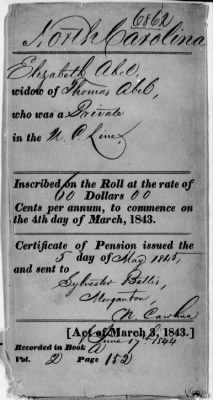 6862
North Carolina
Elizabeth Abel,
widow of Thomas Abel,
who was a Private
in the N. C. Line.
Inscribed on the Roll at the rate of
60 Dollars 00
Cents per annum, to commence on
the 4th day of March, 1843.
Certificate of Pension issued the
5 day of May 1845,
and sent to
Sylvester Bettis,
Morganton,
N. Carolina
[Act of March 3, 1843.]
June 17 1844
Recorded in Book A
Vol. 2 Page 152